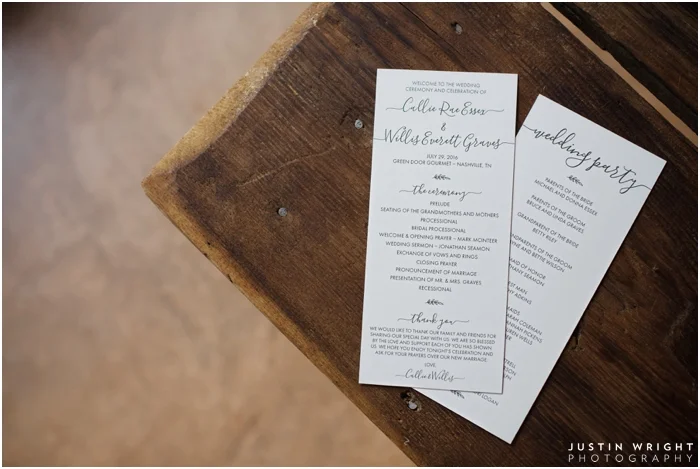 WELCOME TO THE WEDDING
CEREMONY AND CELEBRATION OF
Callie Rae Esser
&
Willis Everett Graves
JULY 29, 2016
GREEN DOOR GOURMET ~ NASHVILLE, TN
the ceremony
PRELUDE
SEATING OF THE GRANDMOTHERS AND MOTHERS
PROCESSIONAL
BRIDAL PROCESSIONAL
WELCOME & OPENING PRAYER ~ MARK MONTEER
WEDDING SERMON ~ JONATHAN SEAMON
EXCHANGE OF VOWS AND RINGS
CLOSING PRAYER
PRONOUNCEMENT OF MARRIAGE
PRESENTATION OF MR. & MRS. GRAVES
RECESSIONAL
thank you
WE WOULD LIKE TO THANK OUR FAMILY AND FRIENDS FOR
SHARING OUR SPECIAL DAY WITH US. WE ARE SO BLESSED
BY THE LOVE AND SUPPORT EACH OF YOU HAS SHOWN
US. WE HOPE YOU ENJOY TONIGHT'S CELEBRATION AND
ASK FOR YOUR PRAYERS OVER OUR NEW MARRIAGE.
LOVE,
Callie & Willis
wedding party
PARENTS OF THE BRIDE
MICHAEL AND DONNA ESSER
PARENTS OF THE GROOM
BRUCE AND LINDA GRAVES
GRANDPARENT OF THE BRIDE
BETTY RILEY
GRANDPARENTS OF THE GROOM
AND BETTIE WILSON
MAID OF HONOR
SEAMON
BEST MAN
ADKINS
SARAH COLEMAN
HANNAH PICKENS
LAUREN WELLS
LOGAN
JUSTIN WRIGHT
PHOTOGRAPHY